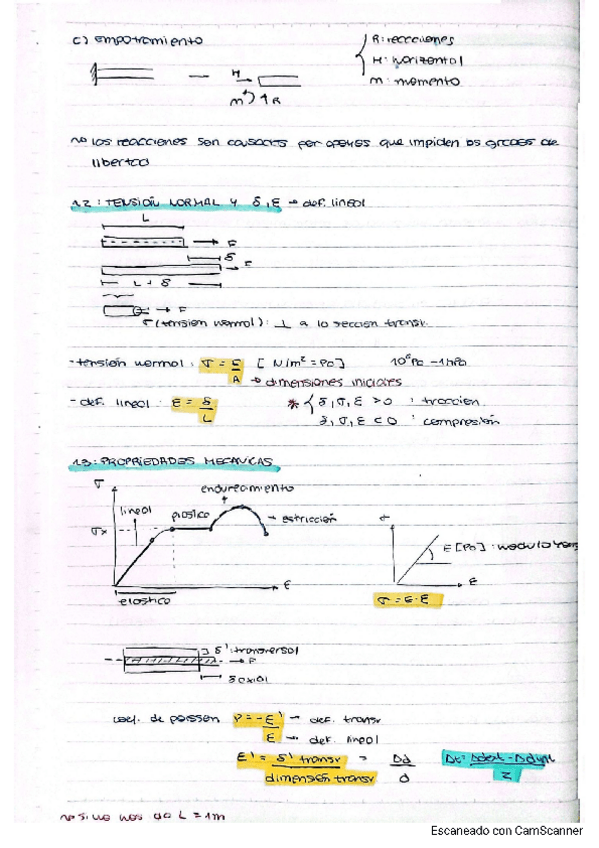 c) empotramiento
R: reacciones
H: horizontal
m: momento
H
m R
no las reacciones son causadas por apoyos que impiden los grados de
libertad
1.2: TENSIÓN NORMAL Y δ, ε → def. lineal
L
F
δ
F
L + δ
F
σ (tensión normal): ⊥ a la sección transv.
- tensión normal: σ = F/A [N/m² = Pa]
→ dimensiones iniciales
- def. lineal: ε = δ/L
* { δ, σ, ε > 0 : tracción
δ, σ, ε < 0 : compresión
1.3: PROPIEDADES MECÁNICAS
σ
endurecimiento
lineal
plástico
estricción
ε
elástico
E [Pa]: modulo
ε
σ = E·ε
δ' transversal
F
δ axial
coef. de poisson
- def. transv
ε - def. lineal
ε' = δ' transv / dimensión transv = Δd / d
L = 1m
Escaneado con CamScanner